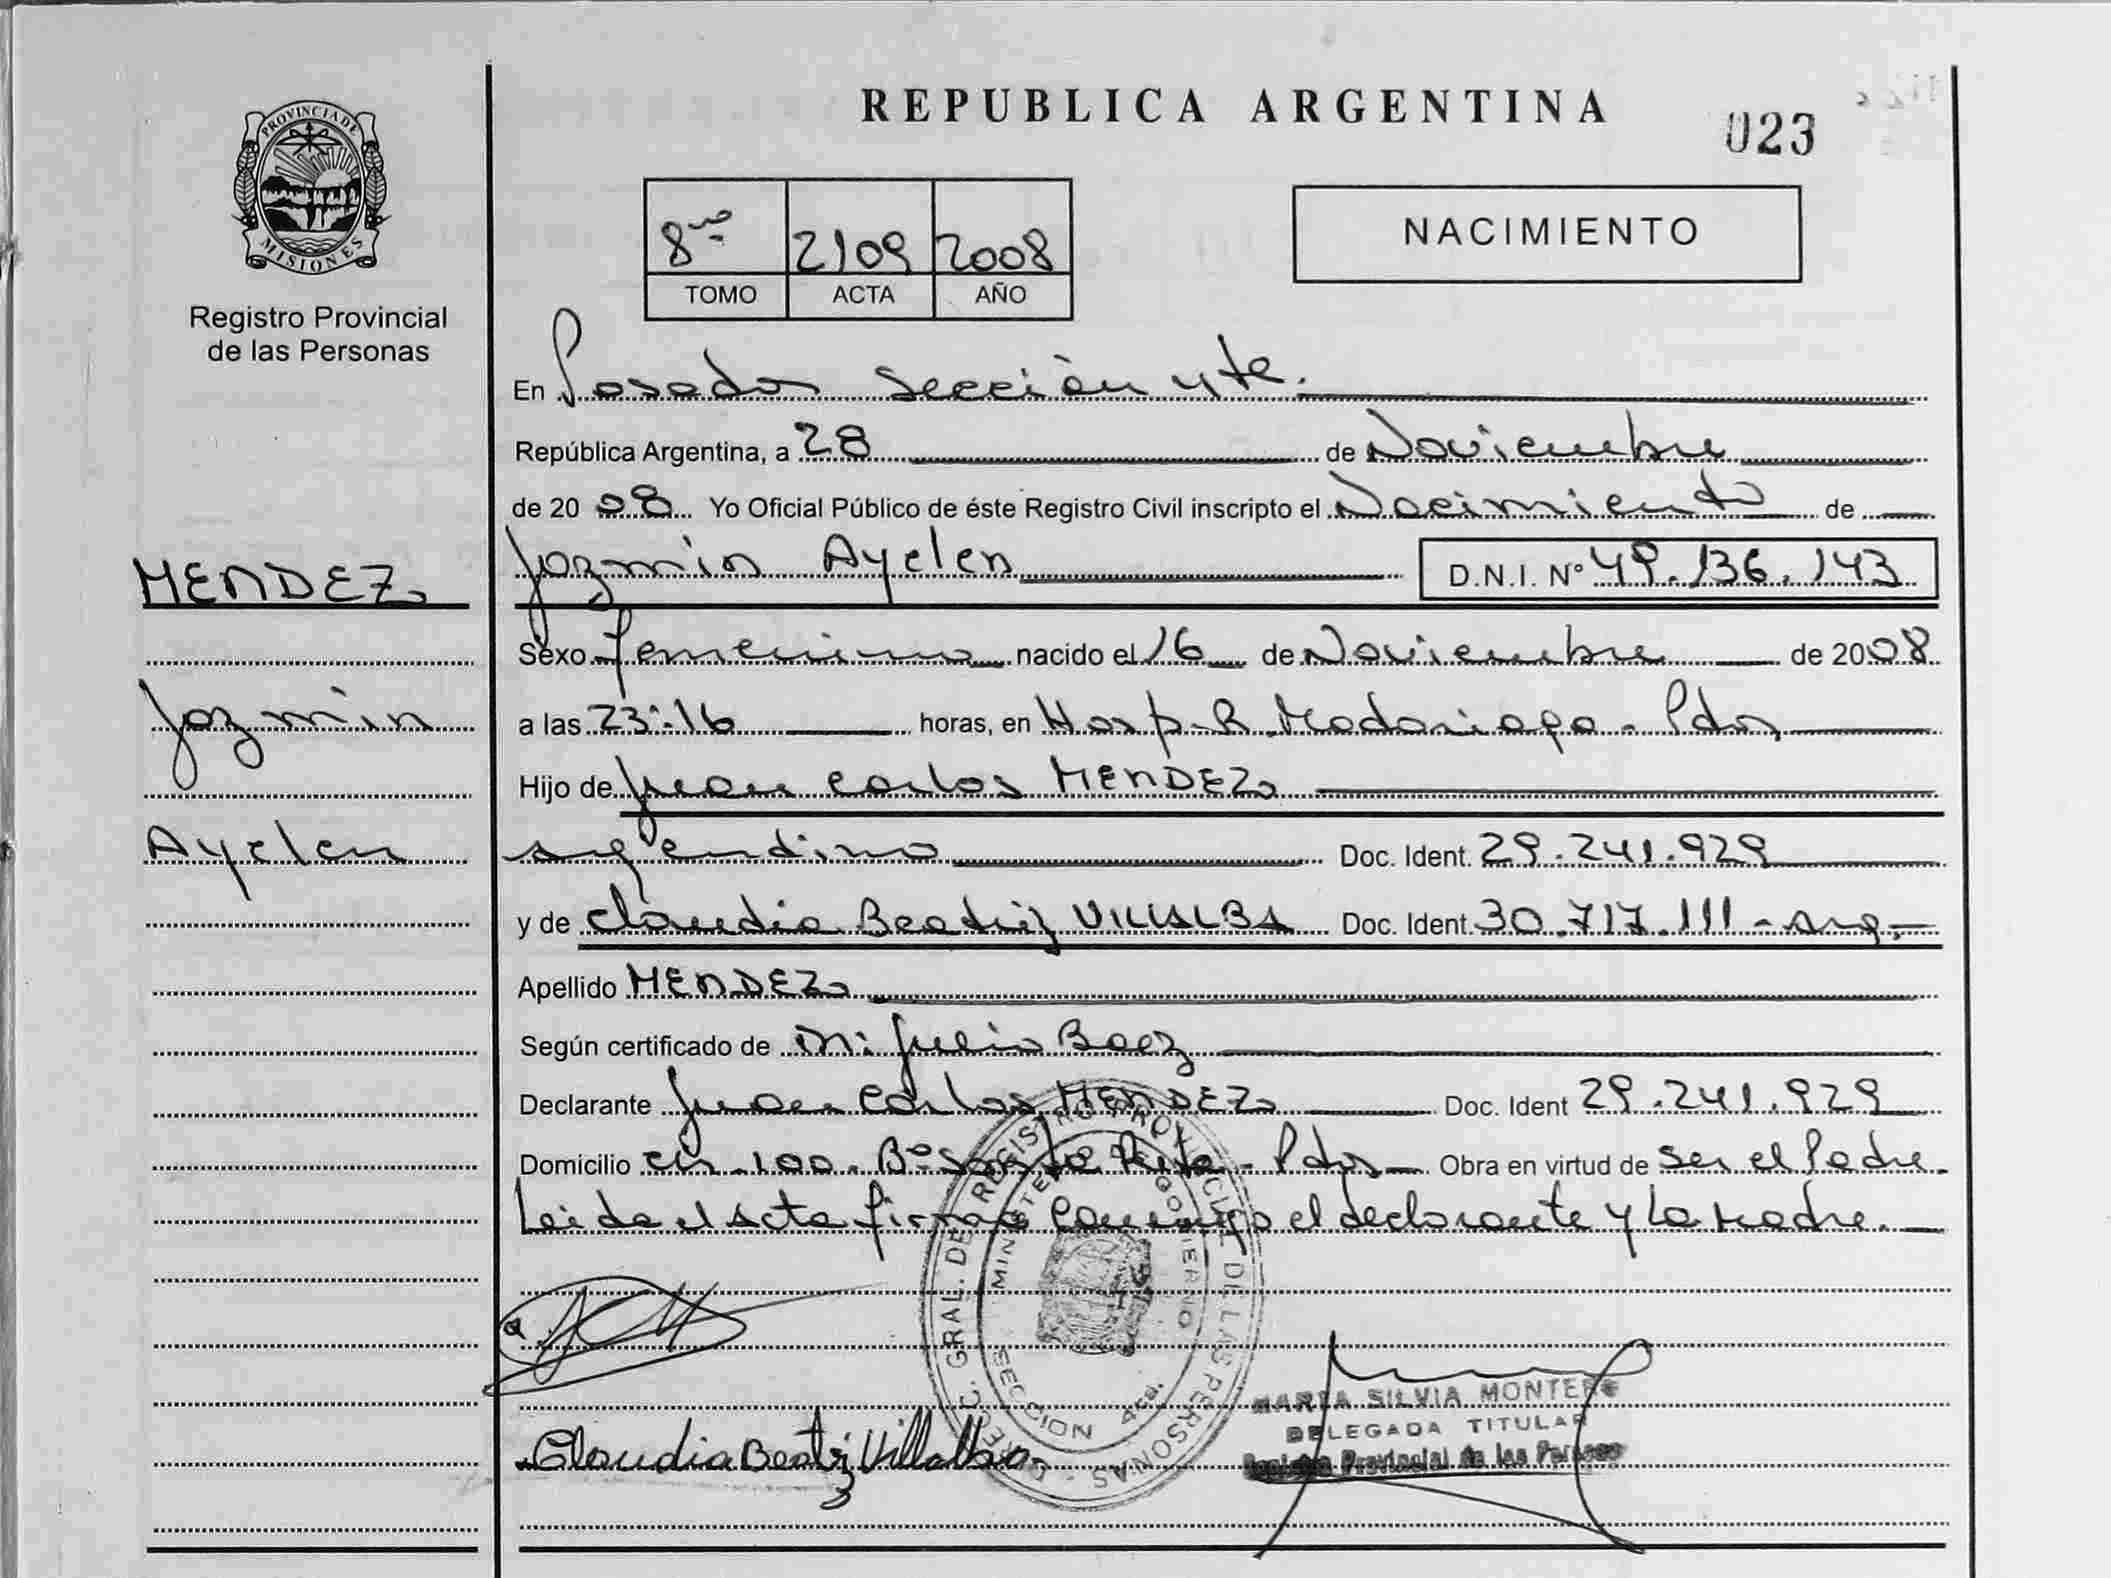 PROVINCIA DE
MISIONES
Registro Provincial
de las Personas
MENDEZ
Jazmin
Ayelen
REPUBLICA ARGENTINA
023
8vo 2109 2008
TOMO ACTA AÑO
NACIMIENTO
En Posadas Sección 4ta.
República Argentina, a 28 de Noviembre
de 2008 Yo Oficial Público de éste Registro Civil inscripto el Nacimiento de
Jazmin Ayelen D.N.I. Nº 49.136.143
Sexo femenino nacido el 16 de Noviembre de 2008
a las 23:16 horas, en Hosp. R. Madariaga - Pdas
Hijo de Juan Carlos MENDEZ
argentino Doc. Ident. 29.241.929
y de Claudia Beatriz VILLALBA Doc. Ident. 30.717.111 - arg.
Apellido MENDEZ
Según certificado de Julio Baez
Declarante Juan Carlos MENDEZ Doc. Ident 29.241.929
Domicilio CH. 100. Bº Santa Rita - Pdas Obra en virtud de ser el Padre.
Leida el acta firman conmigo el declarante y la Madre.
DIRECC. GRAL. DE REGISTRO PROVINCIAL DE LAS PERSONAS
MINISTERIO DE GOBIERNO
SECCION 4ta.
Claudia Beatriz Villalba
MARTA SILVIA MONTERO
DELEGADA TITULAR
Registro Provincial de las Personas